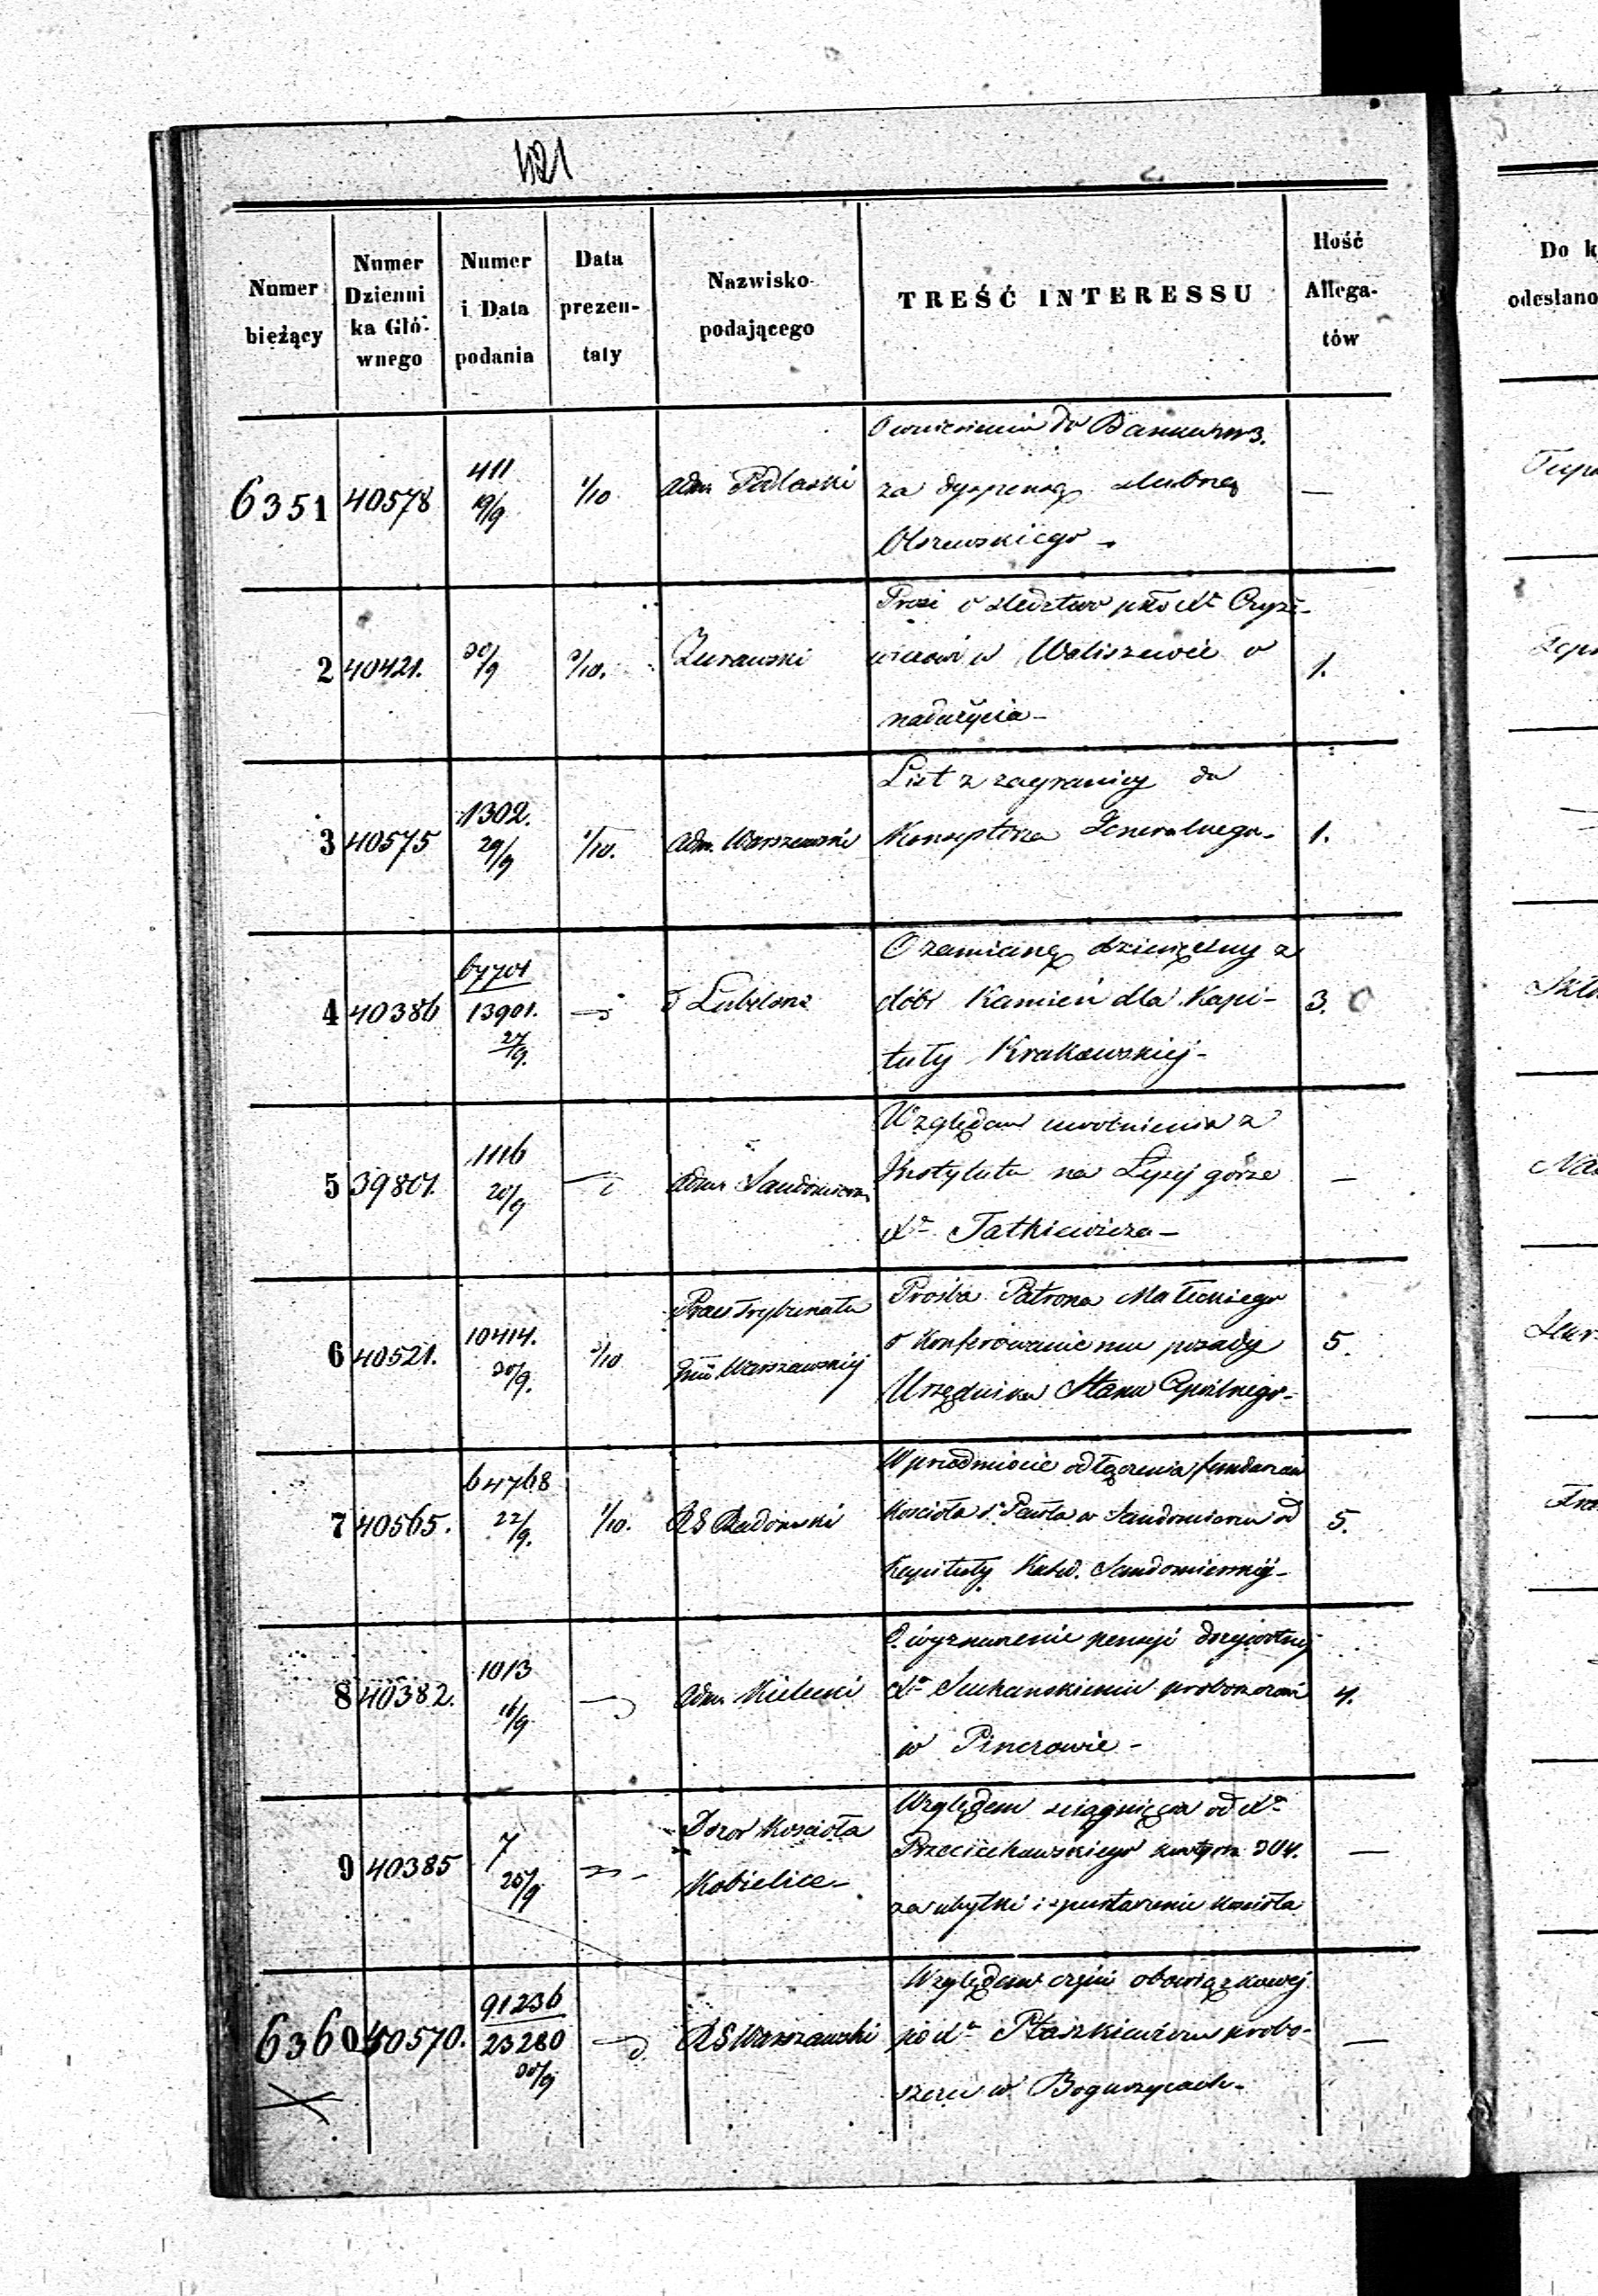 421
Numer bieżący
Numer Dzienni
ka Głó-
wnego
Numer i Data podania
Data prezen-
taty
Nazwisko podającego
TREŚĆ INTERESSU
Ilość Allega-
tów
Do k
odesłano
6351 40578 411 19/9 1/10 Adm Podlaski
O wniesieniu do Banku
za dyspensę ślubną
Olszewskiego —
2 40421. 30/9 1/10. Żurawski
Prosi o śledztwo
w Waliszewie o
nadużycia —
1.
3 40575 1302. 29/9 1/10. Adm. Warszawski
List z zagranicy do
Konsystorza Jeneralnego —
1.
4 40386 67701 13901. 27/9. Lubelski
O zamianę dziesięciny z
dóbr Kamień dla Kapi-
tuły Krakowskiej —
3.
5 39801. 1116 20/9 Adm Sandomiers
Względem uwolnienia z
Instytutu na Łysej górze
Xa Tatkiewicza —
—
6 40521. 10414. 30/9. 1/10 Prezes Trybunału
Gnii Warszawskiej
Prośba Patrona Małeckiego
o konferowanie mu posady
Urzędnika Stanu Cywilnego —
5.
7 40565. 64768 22/9. 1/10. RG Radomski
W przedmiocie odłączenia funduszów
Kościoła S. Pawła w Sandomierzu od
Kapituły Kated. Sandomierskiej —
5.
8 40382. 1013 16/9 Adm Kielecki
O wyznaczenie pensyi dożywotniej
Xu Suchańskiemu proboszczowi
w Pinczowie —
4.
9 40385 7 25/9 Dozor Kościoła
Kobielice —
Względem ściągnięcia od Xa
Przeciechowskiego 304.
za ubytki i spustoszenie Kościoła
—
6360 40570. 91236 23280 30/9 RG Warszawski
Względem części obowiązkowej
po Xu Ptaszkiewiczu probo-
szczu w Boguszycach —
—